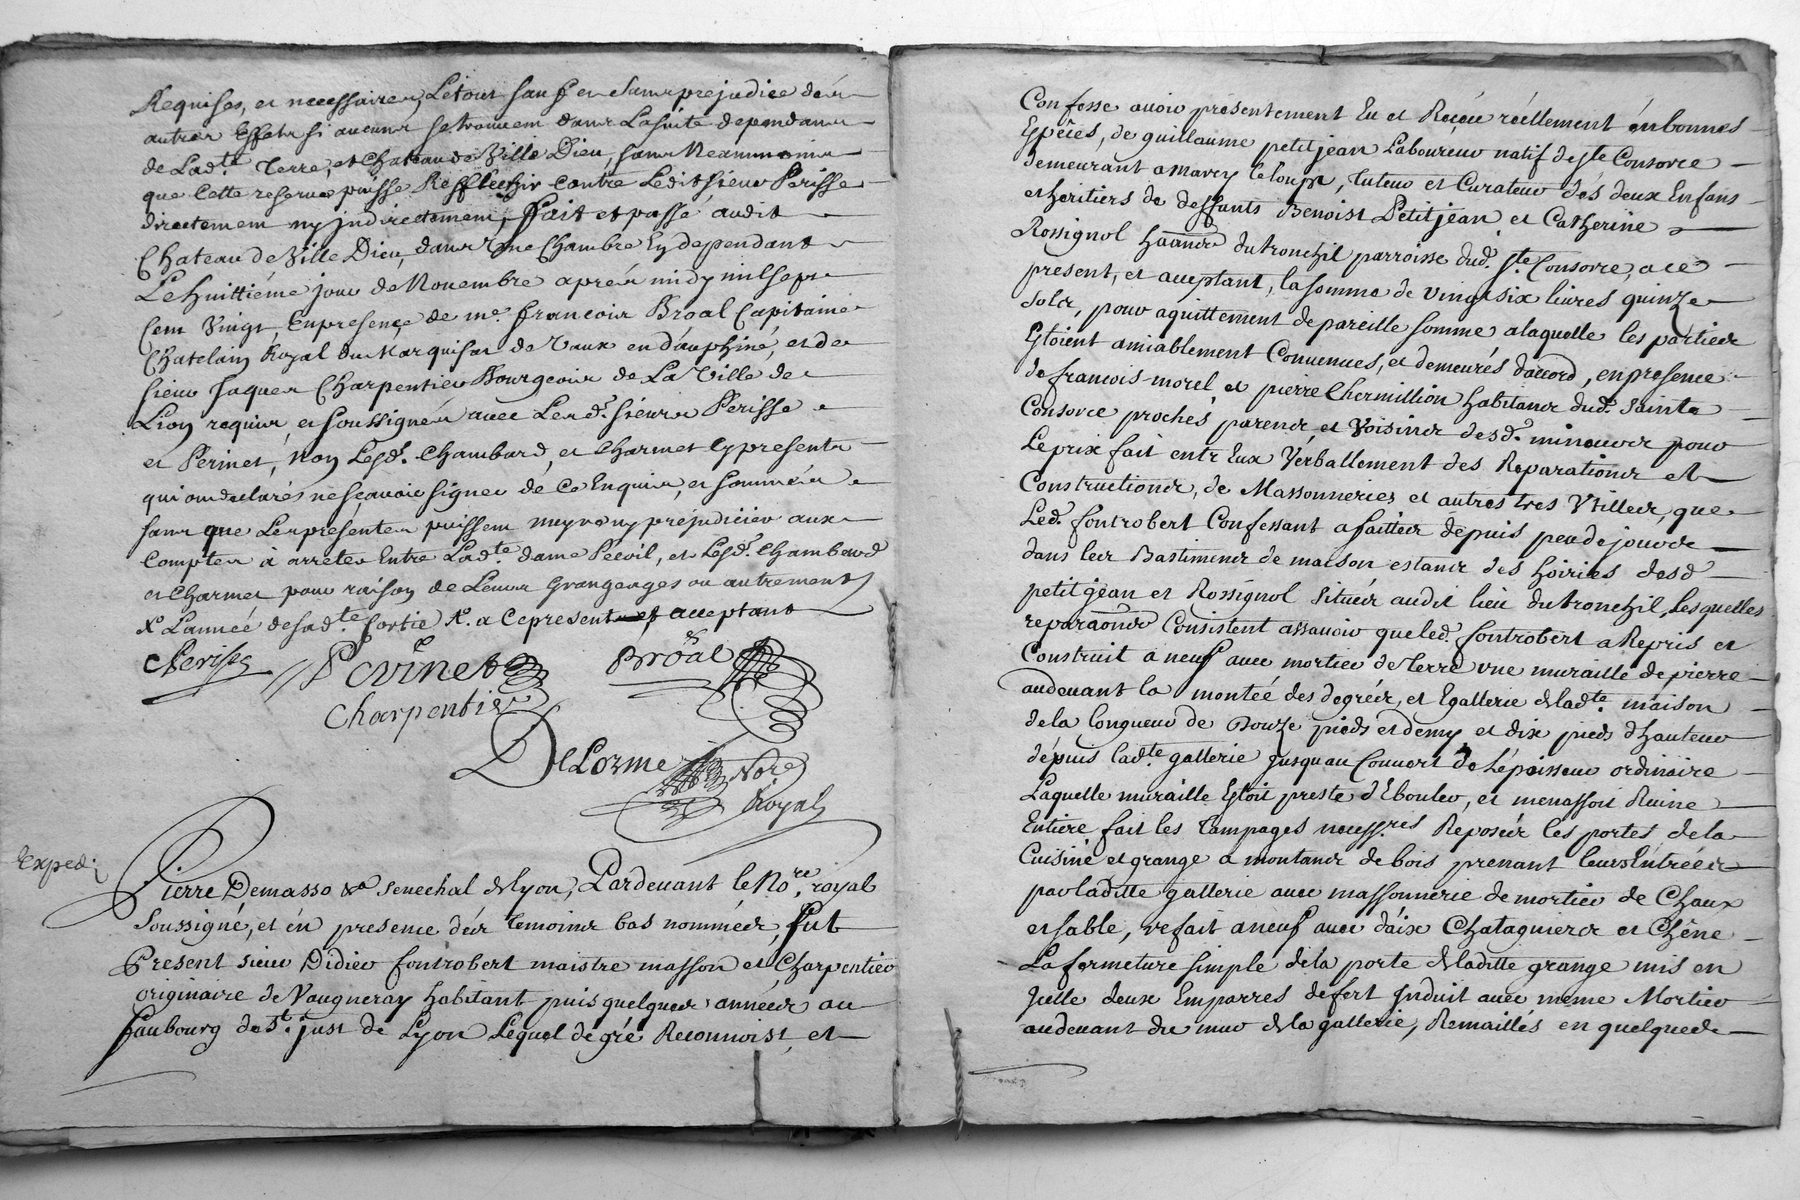 Requises, et necessaires, Letout sauf et sans prejudice des
autres Effets si aucuns setrouvent dans Lasuite dependans
de Ladte. Terre, et Chateau de Ville Dieu, sans Neanmoins
que Cette reserve puisse Refflechir contre Ledit sieur Perisse
directement ny jndirectement, ffait et passé audit
Chateau de Ville Dieu, dans Une Chambre En dependant
Le huittiéme jour de Novembre aprés midy mil sept
Cent Vingt, Enpresence de me. francois Broal Capitaine
Chatelain Royal du Marquisat de Vaux en dauphiné, et de
sieur Jaques Charpentier Bourgeois de La Ville de
Lion requis, et soussignés avec Lesd. sieurs Perisse
et Perinet, Non Lesd. Chambard, et Charmet Cy presents
qui ont declarés ne scavoir signer de Ce Enquis, et sommés
sans que Les présentes puissent nuyre ny prejudicier aux
Comptes à arreter Entre Ladte. dame Pecoil, et Lesd. Chambard
et Charmet pour raison de Leurs Grangeages ou autrement
X Lannée desadte. sortie X. a Ce present et acceptant
Perisse Perinet Broal
Charpentier
DeLorme Nore
Royal
Exped:
Pierre Demasso &a senechal de lyon, Pardevant le Nore. royal
Soussigné, et én presence dés temoins bas nommées, fut
Present sieur Didier fontrobert maistre masson et Charpentier
originaire de Vaugneray habitant puis quelques années au
faubourg de St. just de Lyon Lequel de gré Reconnoist, et
Confesse avoir presentement Eu et Reçeu réellement én bonnes
Espéces, de guillaume petitjean Laboureur natif de ste Consorce
demeurant a Marcy le loup, tuteur et Curateur dés deux Enfans
et heritiers de deffunts Benoist Petitjean et Catherine
Rossignol du tronchil parroisse dud. ste. Consorce, a ce
present, et aceptant, la somme de vingt six livres quinze
sols, pour aquittement de pareille somme a laquelle les parties
Estoient amiablement Convenues, et demeurés daccord, en presence
de francois morel et pierre Chermillion habitans dud. sainte
Consorce prochés parens et Voisins desd. mineurs pour
Le prix fait entr Eux Verballement des Reparations et
Constructions, de Massonneries et autres tres Vtilles, que
Led. fontrobert Confessant a faittes depuis peu de jours
dans les Bastimens de maison estans des hoiries desd
petitjean et Rossignol situés audit lieu du tronchil, Lesquelles
reparaons Consistent assavoir que led. fontrobert a Repris et
Construit a neuf avec mortier de terre une muraille de pierre
audevant la montée des degrés, et Egallerie de ladte. maison
de la Longueur de Douze pieds et demy et dix pieds d'hauteur
depuis ladte gallerie jusqu au Couvert de Lépaisseur ordinaire
Laquelle muraille Estoit preste d'Ebouler, et menassoit Ruine
Entiére fait les tampages necessres Reposér les portes de la
Cuisine et grange a montans de bois prenant leurs Entrées
par laditte gallerie avec massonnerie de mortier de Chaux
et sable, refait a neuf avec daix Chataquiers et Chêne
La fermeture simple de la porte de laditte grange mis en
jcelle deux Emparres de fert Induit avec méme Mortier
audevant du mur de la gallerie, Remaillés en quelques